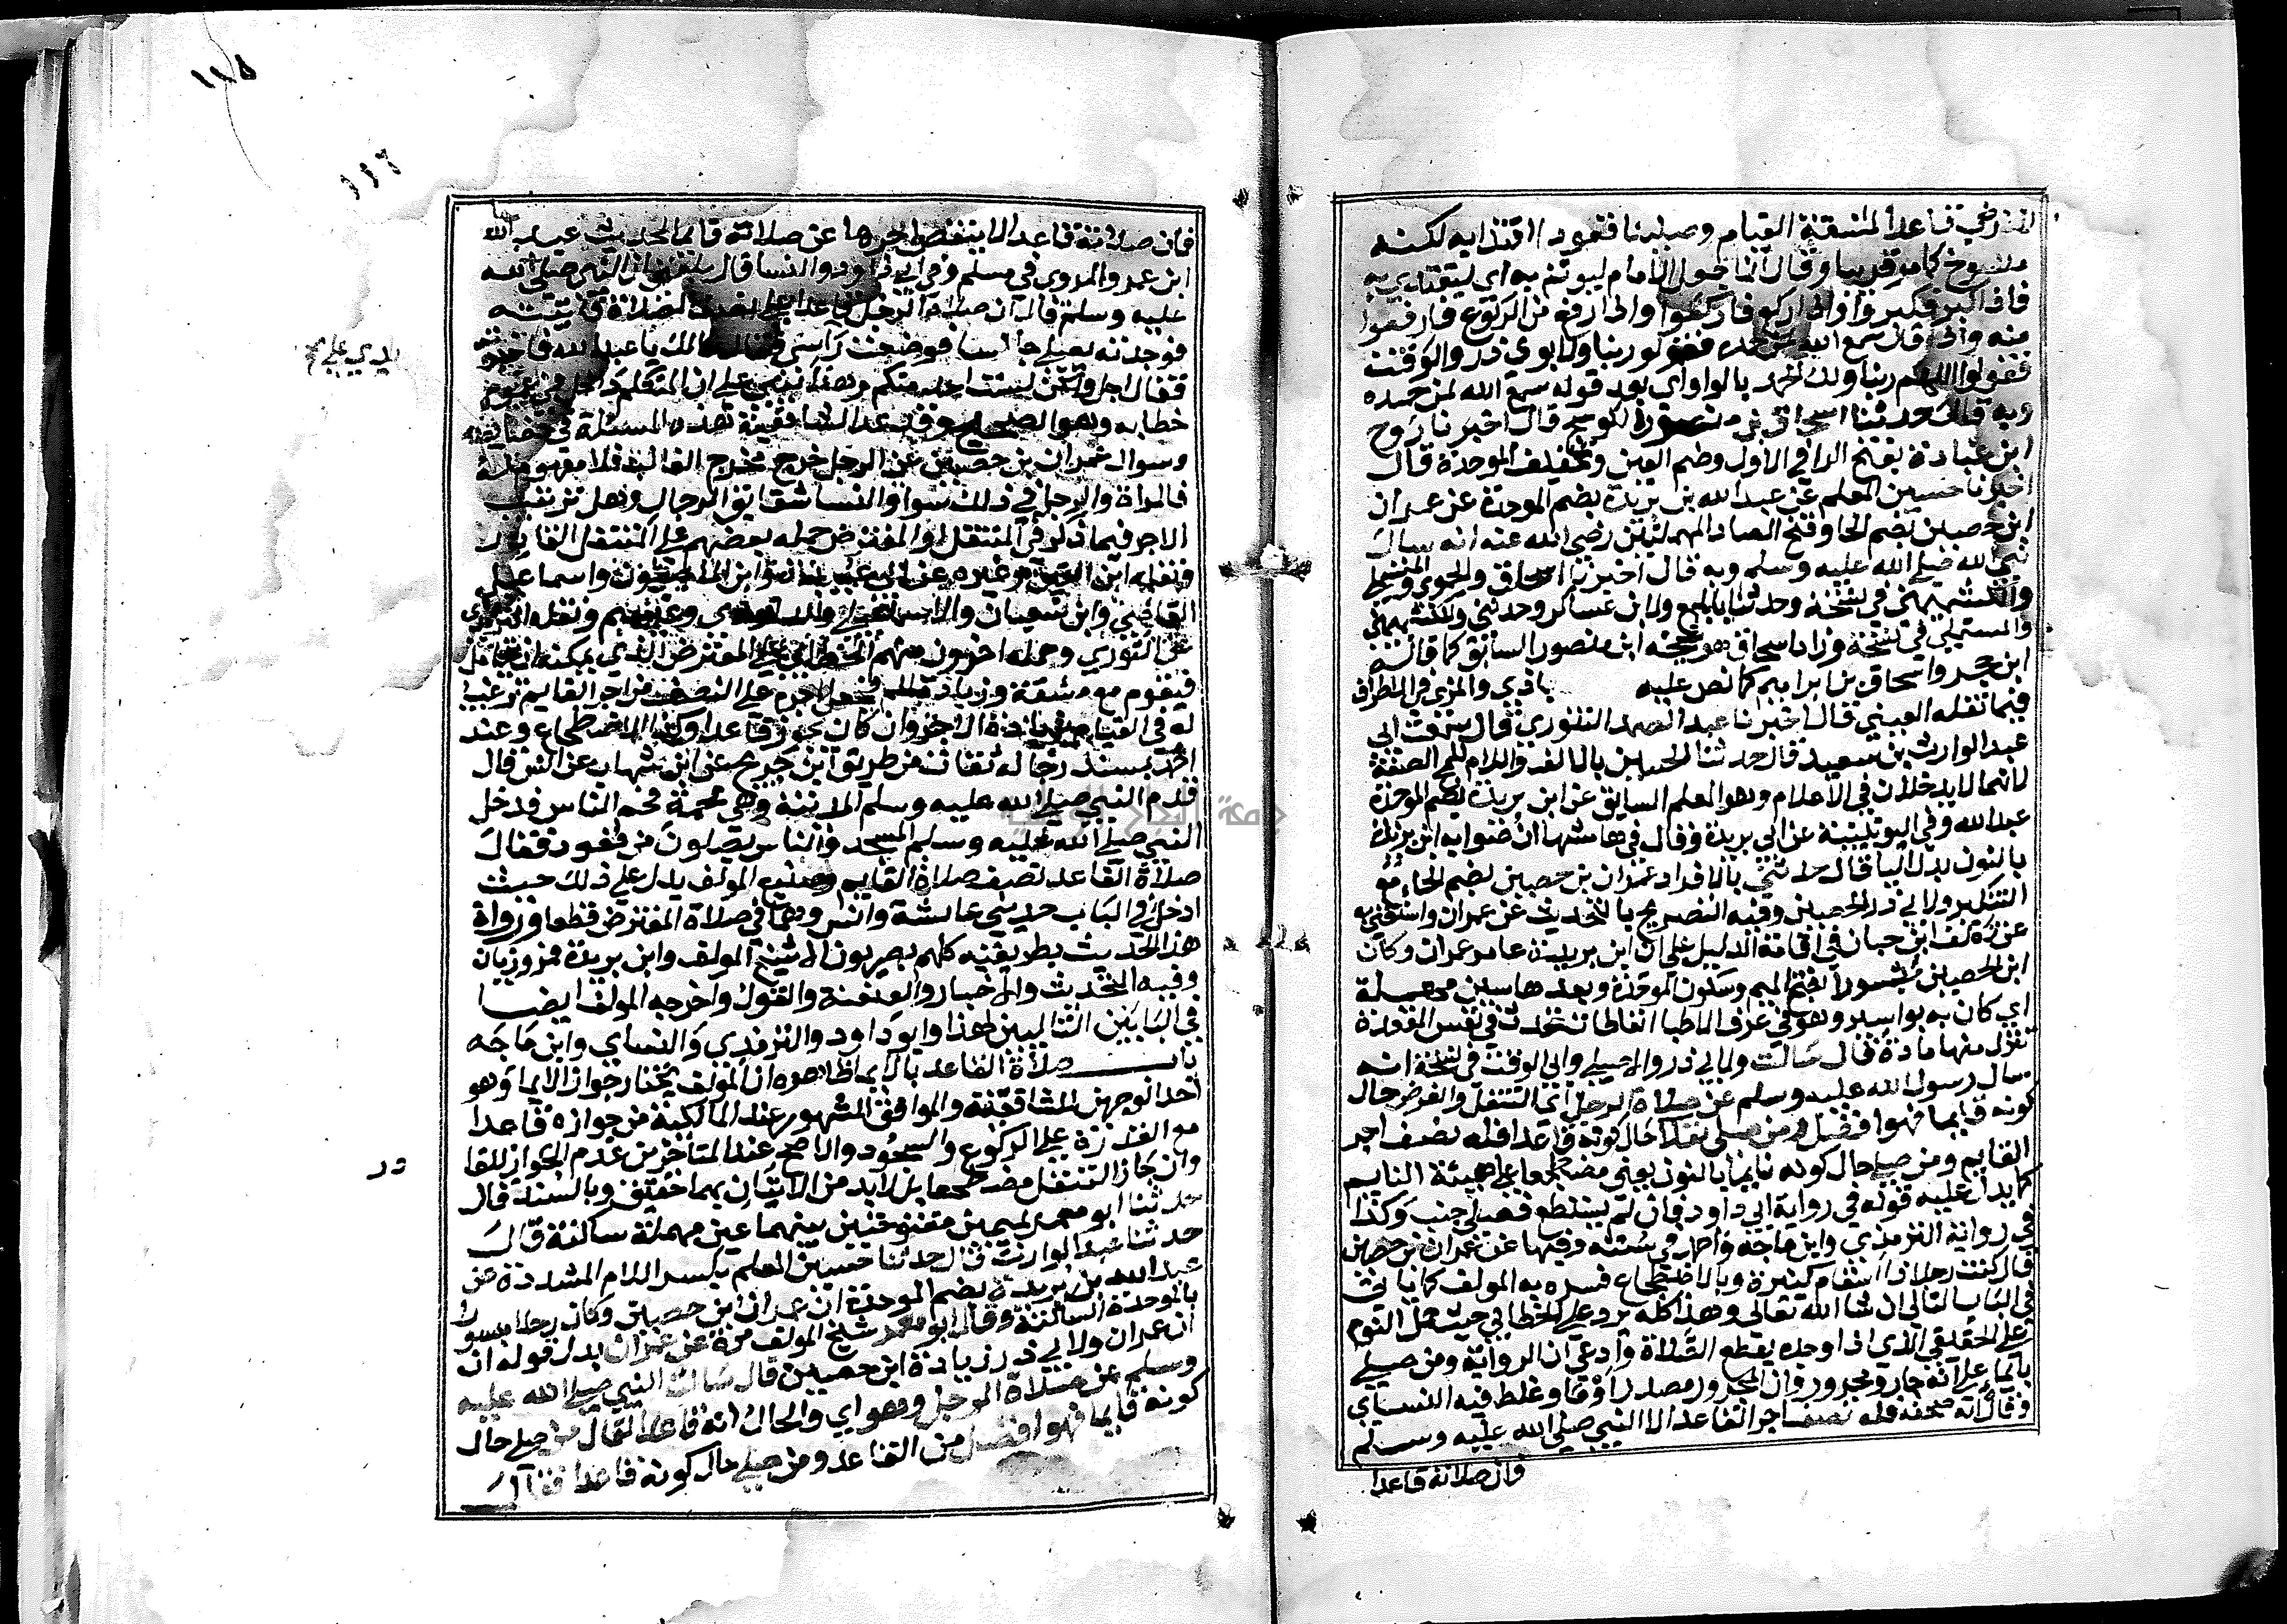 فاعدا لمشقة القيام وصلينا قعودا اقتدا به لكنه
منسوخ كما مر قريبا وقال انما جعل الامام ليوتم به اى ليقتدي به
فاذا كبر فكبروا واذا ركع فاركعوا واذا رفع من الركوع فارفعوا
منه واذا قال سمع الله لمن حمده فقولوا ربنا ولابوي ذر والوقت
فقولوا اللهم ربنا ولك الحمد بالواو اي بعد قوله سمع الله لمن حمده
وبه قال حدثنا اسحاق بن منصور الكوسج قال اخبرنا روح
ابن عبادة بفتح الرا في الاول وضم العين وتخفيف الموحدة قال
اخبرنا حسين المعلم عن عبد الله بن بريدة بضم الموحدة عن عمران
ابن حصين بضم الحا وفتح الصاد المهملتين رضي الله عنه انه سال
نبي الله صلى الله عليه وسلم وبه قال اخبرنا اسحاق وللحموي والمستملي
والكشميهني في نسخة وحدثنا بالجمع ولابن عساكر وحدثني وللكشميهني
والمستملي في نسخة وزاد اسحاق هو ابن منصور السابق كما قاله
ابن حجر واسحاق بن ابراهيم كما نص عليه باذي والمزي في الاطراف
فيما نقله العيني قال اخبرنا عبد الصمد التنوري قال سمعت ابي
عبد الوارث بن سعيد قال حدثنا الحسين بالالف واللام للمح الصفة
لانهما لا يدخلان في الاعلام وهو المعلم السابق عن ابن بريدة بضم الموحدة
عبد الله وفي اليونينية عن ابي بريدة وقال في هامشها ان صوابه ابن بريدة
بالنون بدل اليا قال حدثني بالافراد عمران بن حصين بضم الحاء مع
التنكير ولابي ذر الحصين وفيه التصريح بالتحديث عن عمران واستغني به
عن تكلف ابن حبان في اقامة الدليل على ان ابن بريدة عاصر عمران وكان
ابن الحصين مبسورا بفتح الميم وسكون الموحدة وبعدها سين مهملة
اي كان به بواسير وهو في عرف الاطبا نفاطات تحدث في نفس المقعدة
تنزل منها مادة قال سالت ولابي ذر والاصيلي وابي الوقت في نسخة انه
سال رسول الله عليه وسلم عن صلاة الرجل اي التنفل والفرض حال
كونه قايما فهو افضل ومن صلى نفلا حال كونه قاعدا فله نصف اجر
القايم ومن صلى حال كونه نايما بالنون يعني مضطجعا على هيئة النايم
كما يدل عليه قوله في رواية ابي داود فان لم يستطع فعلى جنب وكذا
في رواية الترمذي وابن ماجه واحمد في سننه وفيها عن عمران بن حصين
قال كنت رجلا ذا اسقام كثيرة وبالاضطجاع فسره به المولف كما ياتي
في الباب التالي ان شا الله تعالى وهذا كله يرد على الخطابي حيث حمل النوم
على الحقيقي الذي اذا وجده يقطع الصلاة وادعي ان الرواية ومن صلى
بايماء على انه جار ومجرور وان المجرور مصدر اومأ وغلط فيه النسياي
وقال انه صحفه فله نصف اجر القاعد الا النبي صلى الله عليه وسلم
فان صلاته قاعدا
١١٥
١١٦
فان صلاته قاعدا لا ينقص اجرها عن صلاته قائما لحديث عبد الله
ابن عمرو المروي في مسلم وفي ابي داود والنسا قال بلغني ان النبي صلى الله
عليه وسلم قال ان صلاة الرجل قاعدا على نصف الصلاة فاتيته
فوجدته يصلي جالسا فوضعت راسي فقال مالك يا عبد الله فاخبرته
فقال اجل ولكن لست احد منكم وهذا ينبني على ان المتكلم داخل في عموم
خطابه وهو الصحيح وقد عد الشافعية هذه المسئلة في خصايصه
وسوال عمران بن حصين عن الرجل خرج مخرج الغالب فلا مفهوم له
فالمراة والرجل في ذلك سوا والنسا شقايق الرجال وهل ترتيب
الاجر فيما ذكر في المتنفل او المفترض حمله بعضهم على المتنفل القادر
ونقله ابن التين وغيره عن ابي عبيد وابن الماجشون واسماعيل
القاضي وابن شعبان والاسماعيلي والداودي وغيرهم ونقله الترمذي
عن الثوري وحمله اخرون منهم الخطابي على المفترض الذي يمكنه ان يتحامل
فيقوم مع مشقة وزيادة الم فجعل اجره على النصف من اجر القايم ترغيبا
له في القيام لزيادة الاجر وان كان يجوز قاعدا وكذا الاضطجاع وعند
احمد بسند رجاله ثقات من طريق ابن جريج عن ابن شهاب عن انس قال
قدم النبي صلى الله عليه وسلم المدينة وهي محمة فحم الناس فدخل
النبي صلى الله عليه وسلم المسجد والناس يصلون من قعود فقال
صلاة القاعد نصف صلاة القايم وصنيع المولف يدل على ذلك حيث
ادخل في الباب حديثي عائشة وانس وهما في صلاة المفترض قطعا ورواة
هذا الحديث بطريقيه كلهم بصريون الا شيخ المولف وابن بريدة فمروزيان
وفيه التحديث والاخبار والعنعنة والقول واخرجه المولف ايضا
في البابين التاليين لهذا وابو داود والترمذي والنساي وابن ماجه
باب صلاة القاعد بالايما ظاهره ان المولف يختار جواز الايما وهو
احد الوجهين للشافعية والموافق للمشهور عند المالكية من جوازه قاعدا
مع القدرة على الركوع والسجود والاصح عند المتاخرين عدم الجواز للقا
در
وان جاز التنفل مضطجعا بل لابد من الاتيان بهما حقيقة وبالسند قال
حدثنا ابو معمر بميمين مفتوحتين بينهما عين مهملة ساكنة قال
حدثنا عبد الوارث قال حدثنا حسين المعلم بكسر اللام المشددة عن
عبد الله بن بريدة بضم الموحدة ان عمران ابن حصين وكان رجلا مبسورا
بالموحدة الساكنة وقال ابو معمر شيخ المولف مرة عن عمران بدل قوله ان
ان عمران ولابي ذر زيادة ابن حصين قال سالت النبي صلى الله عليه
وسلم عن صلاة الرجل وهو اي والحال انه قاعد فقال من صلى حال
كونه قايما فهو افضل من القاعد ومن صلى حال كونه قاعدا فقال